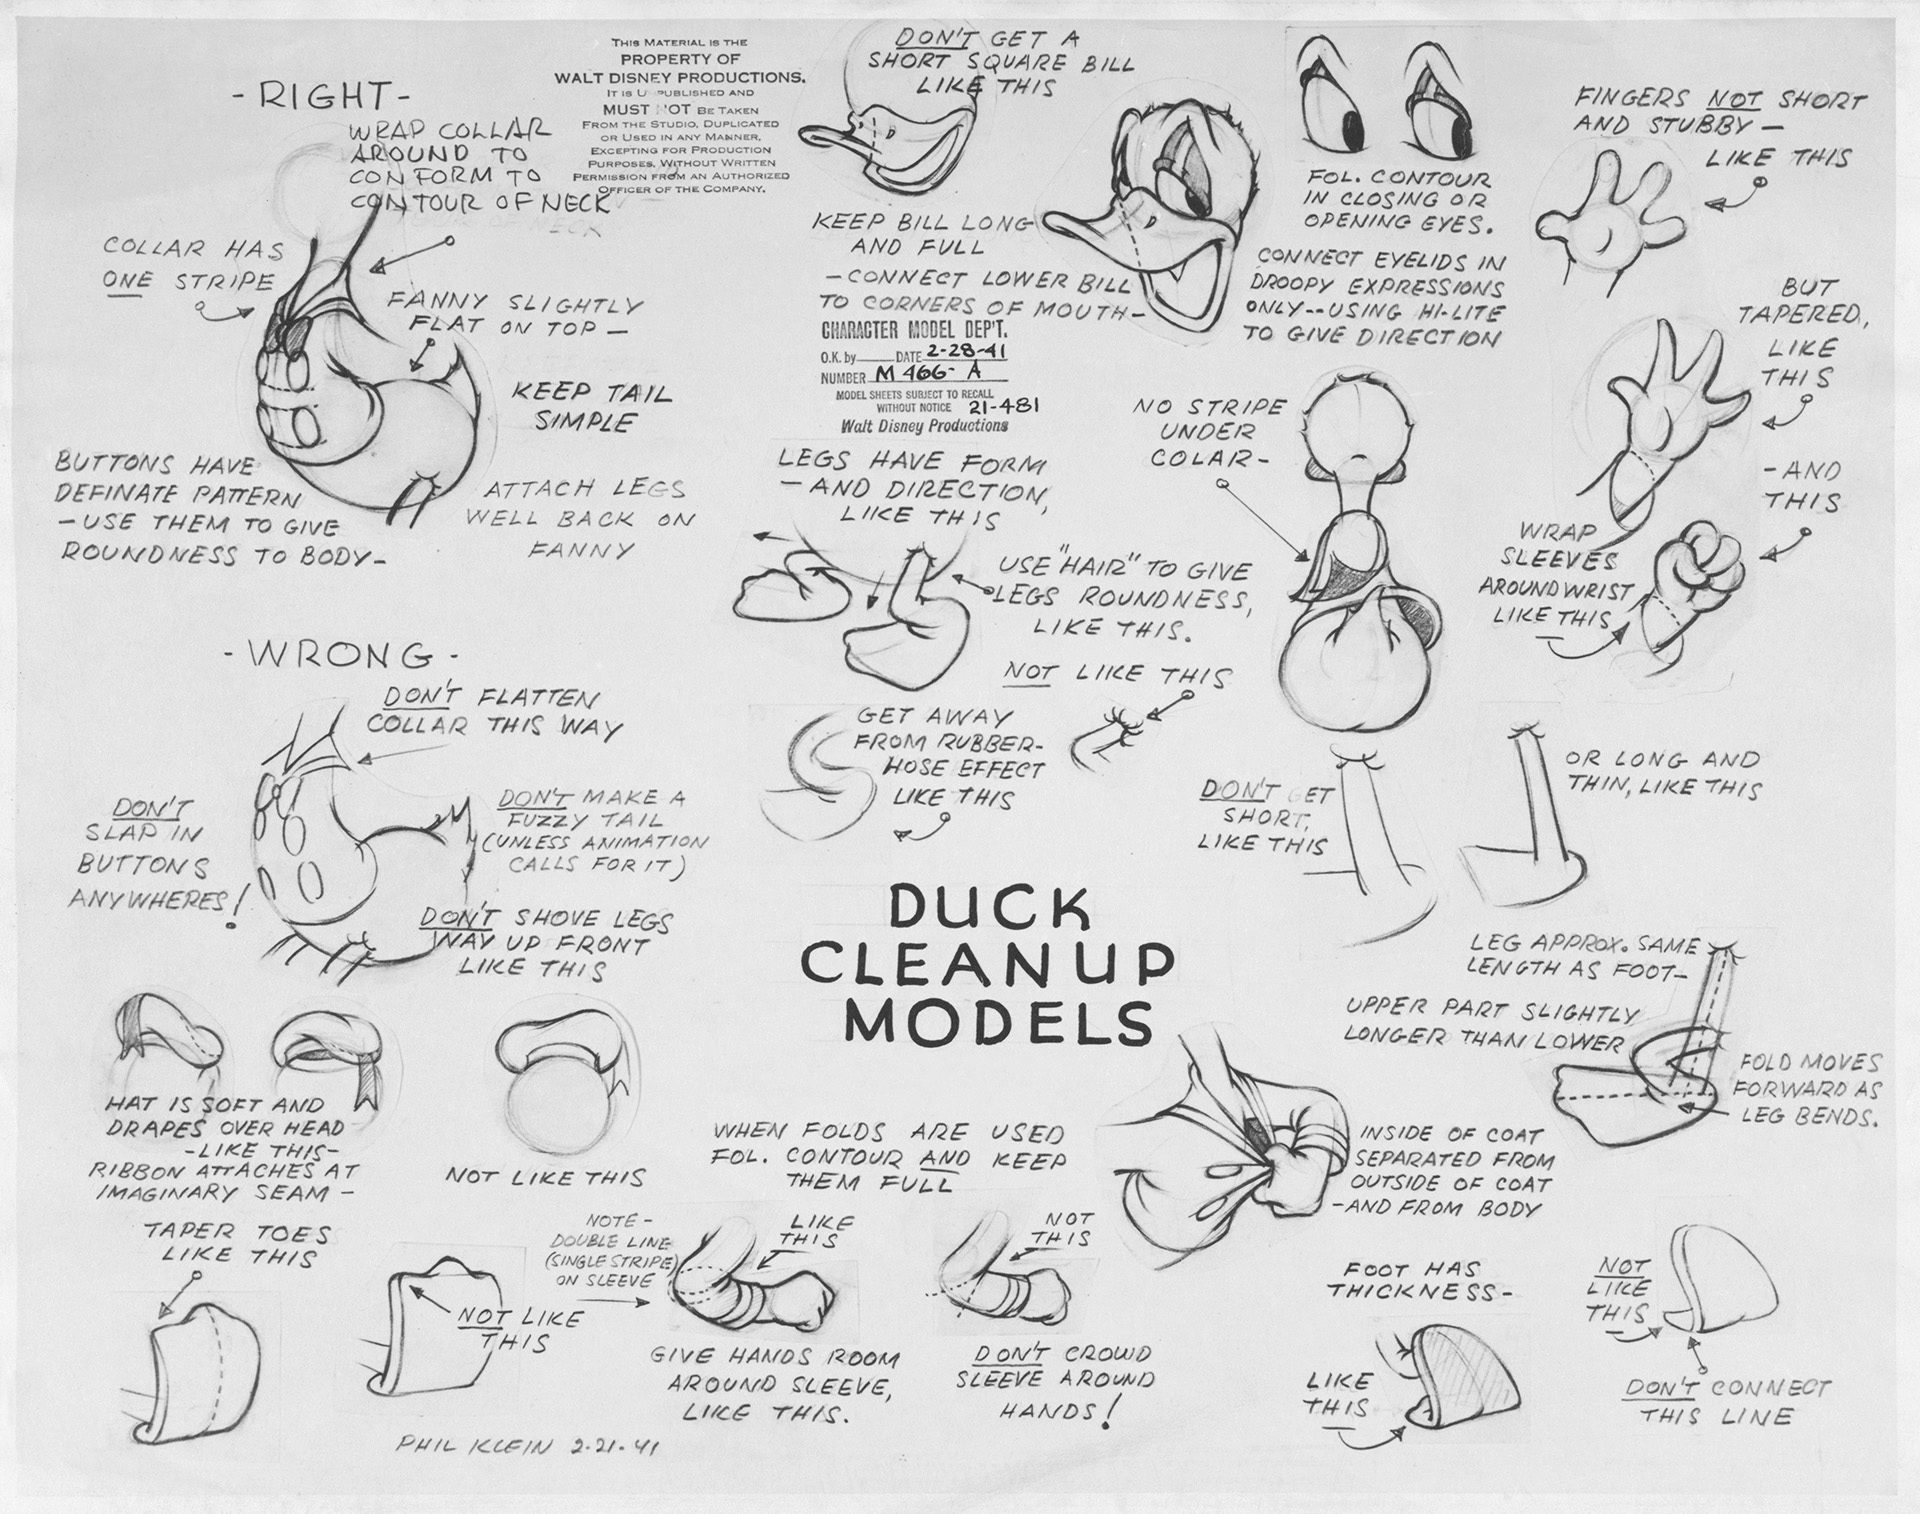 THIS MATERIAL IS THE
PROPERTY OF
WALT DISNEY PRODUCTIONS.
IT IS U PUBLISHED AND
MUST NOT BE TAKEN
FROM THE STUDIO, DUPLICATED
OR USED IN ANY MANNER,
EXCEPTING FOR PRODUCTION
PURPOSES, WITHOUT WRITTEN
PERMISSION FROM AN AUTHORIZED
OFFICER OF THE COMPANY.
- RIGHT -
WRAP COLLAR
AROUND TO
CONFORM TO
CONTOUR OF NECK
COLLAR HAS
ONE STRIPE
FANNY SLIGHTLY
FLAT ON TOP -
KEEP TAIL
SIMPLE
BUTTONS HAVE
DEFINATE PATTERN
- USE THEM TO GIVE
ROUNDNESS TO BODY -
ATTACH LEGS
WELL BACK ON
FANNY
- WRONG -
DON'T FLATTEN
COLLAR THIS WAY
DON'T
SLAP IN
BUTTONS
ANYWHERES!
DON'T MAKE A
FUZZY TAIL
(UNLESS ANIMATION
CALLS FOR IT)
DON'T SHOVE LEGS
WAY UP FRONT
LIKE THIS
DON'T GET A
SHORT SQUARE BILL
LIKE THIS
KEEP BILL LONG
AND FULL
- CONNECT LOWER BILL
TO CORNERS OF MOUTH -
CHARACTER MODEL DEP'T.
O.K. by DATE 2-28-41
NUMBER M 466- A
MODEL SHEETS SUBJECT TO RECALL
WITHOUT NOTICE 21-481
Walt Disney Productions
FOL. CONTOUR
IN CLOSING OR
OPENING EYES.
CONNECT EYELIDS IN
DROOPY EXPRESSIONS
ONLY -- USING HI-LITE
TO GIVE DIRECTION
FINGERS NOT SHORT
AND STUBBY -
LIKE THIS
BUT
TAPERED,
LIKE
THIS
- AND
THIS
WRAP
SLEEVES
AROUND WRIST
LIKE THIS
LEGS HAVE FORM
- AND DIRECTION,
LIKE THIS
USE "HAIR" TO GIVE
LEGS ROUNDNESS,
LIKE THIS.
NOT LIKE THIS
GET AWAY
FROM RUBBER-
HOSE EFFECT
LIKE THIS
NO STRIPE
UNDER
COLAR -
DON'T GET
SHORT,
LIKE THIS
OR LONG AND
THIN, LIKE THIS
LEG APPROX. SAME
LENGTH AS FOOT -
UPPER PART SLIGHTLY
LONGER THAN LOWER
FOLD MOVES
FORWARD AS
LEG BENDS.
DUCK
CLEANUP
MODELS
HAT IS SOFT AND
DRAPES OVER HEAD
- LIKE THIS -
RIBBON ATTACHES AT
IMAGINARY SEAM -
NOT LIKE THIS
WHEN FOLDS ARE USED
FOL. CONTOUR AND KEEP
THEM FULL
INSIDE OF COAT
SEPARATED FROM
OUTSIDE OF COAT
- AND FROM BODY
TAPER TOES
LIKE THIS
NOT LIKE
THIS
NOTE -
DOUBLE LINE
(SINGLE STRIPE)
ON SLEEVE
LIKE
THIS
GIVE HANDS ROOM
AROUND SLEEVE,
LIKE THIS.
NOT
THIS
DON'T CROWD
SLEEVE AROUND
HANDS!
FOOT HAS
THICKNESS -
LIKE
THIS
NOT
LIKE
THIS
DON'T CONNECT
THIS LINE
PHIL KLEIN 2-21-41